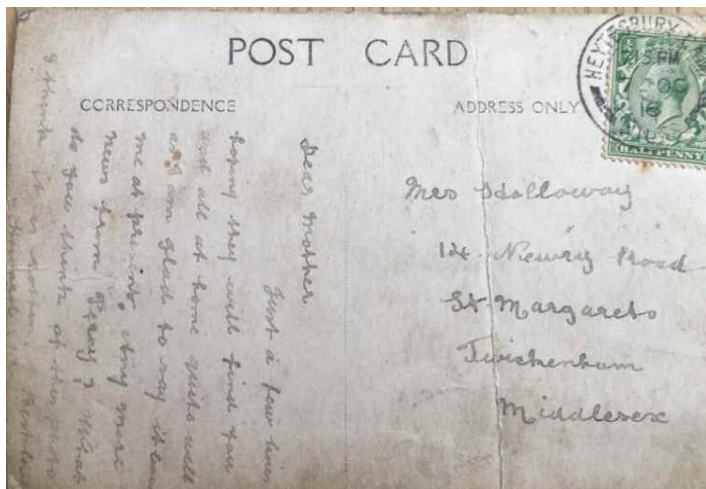 POST CARD
CORRESPONDENCE
ADDRESS ONLY
HEYTESBURY
PM
OC
16
HALFPENNY
Dear Mother
Just a few lines
hoping they will find you
and all at home quite well
as I am glad to say it leaves
me at present. Any more
news from ? What
do you think of this photo
I think it is rotten.
Mrs Holloway
14 Newry Road
St Margarets
Twickenham
Middlesex